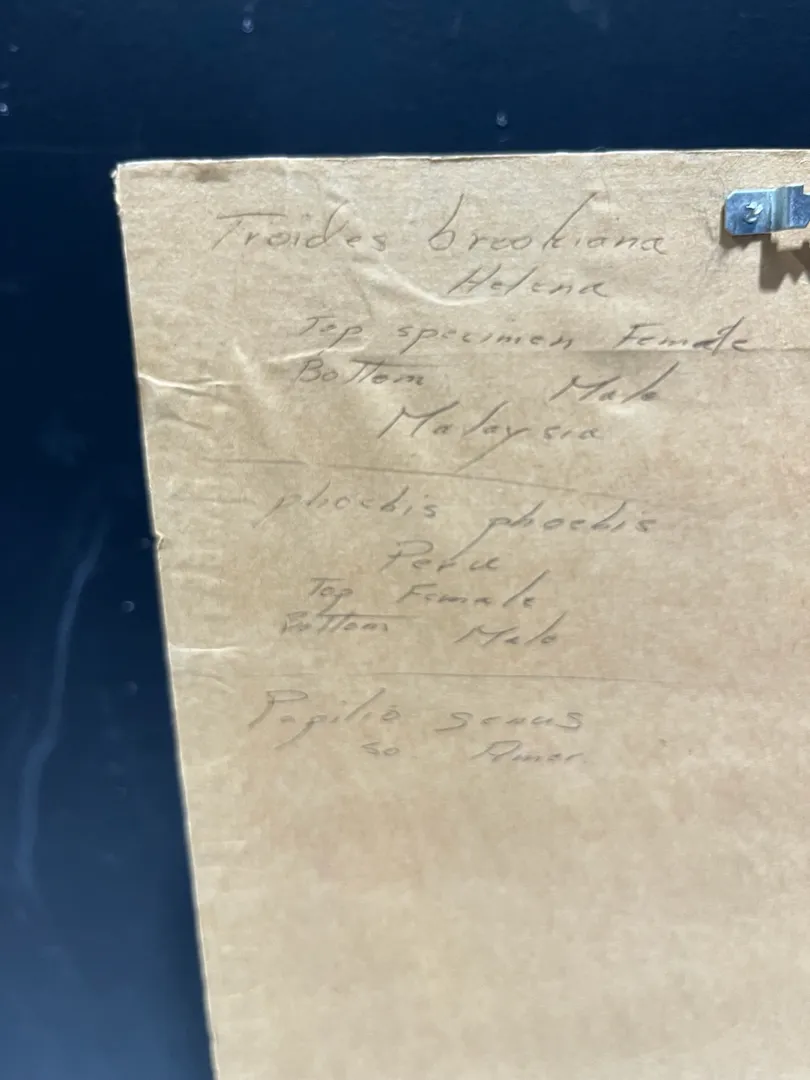 Troides brookiana
Helena
Top specimen Female
Bottom Male
Malaysia
phoebis phoebis
Peru
Top Female
Bottom Male
Papilio genus
So Amer.